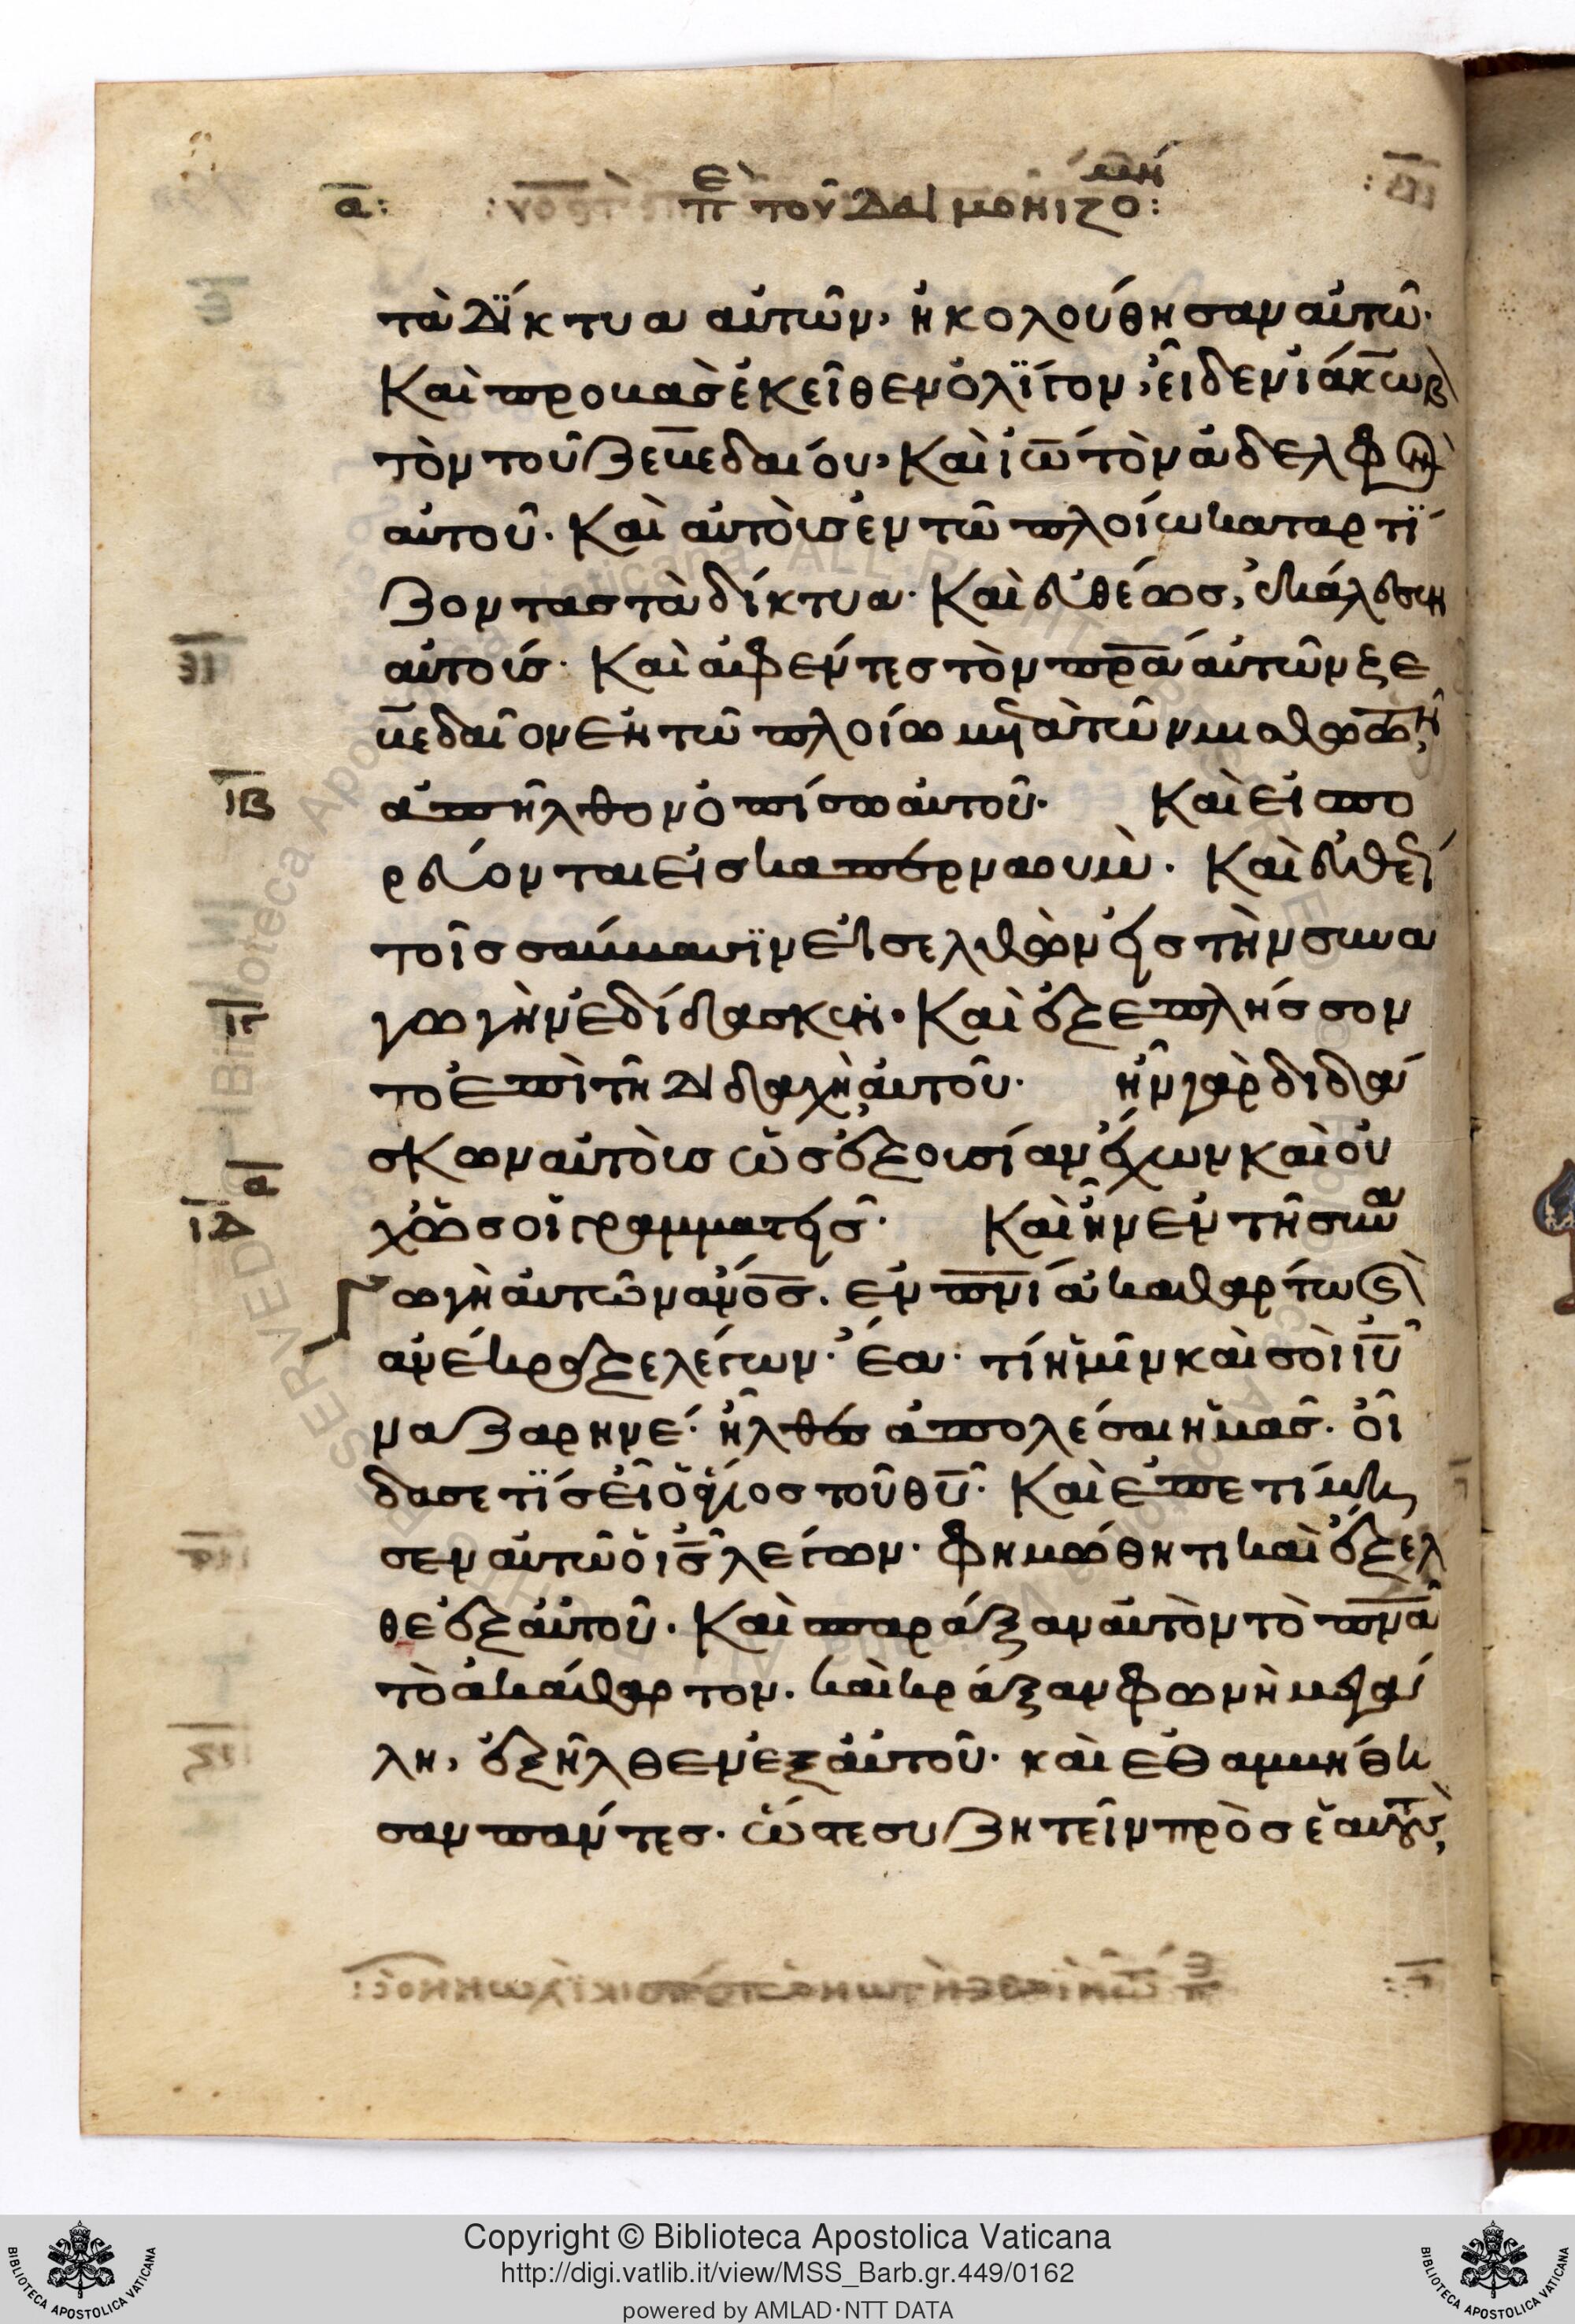 α: ε π τοῦ δαιμονιζομένου:
τὰ δίκτυα αὐτῶν, ἠκολούθησαν αὐτῶ.
Καὶ προβὰς ἐκεῖθεν ὀλίγον, εἶδεν ἰάκωβ
τὸν τοῦ ζεβεδαίου, Καὶ ἰω̅ τὸν ἀδελφὸν
αὐτοῦ. Καὶ αὐτοὺς ἐν τῶ πλοίω καταρτί
ζοντας τὰ δίκτυα. Καὶ εὐθέως, ἐκάλεσεν
αὐτούς. Καὶ ἀφέντες τὸν πρ̅α αὐτῶν ζε
βεδαῖον ἐν τῶ πλοίω μετὰ τῶν μισθωτῶν,
ἀπῆλθον ὀπίσω αὐτοῦ. Καὶ εἰσπο
ρεύονται εἰς καπερναούμ. Καὶ εὐθέως
τοῖς σάββασιν εἰσελθὼν εἰς τὴν συνα
γωγὴν ἐδίδασκεν. Καὶ ἐξεπλήσσον
το ἐπὶ τῆ διδαχῆ αὐτοῦ. ἦν γὰρ διδά
σκων αὐτοὺς ὡς ἐξουσίαν ἔχων καὶ οὐ
χ ὡς οἱ γραμματεῖς. Καὶ ἦν ἐν τῆ συνα
γωγῆ αὐτῶν αν̅ο̅ς. ἐν πν̅ι ἀκαθάρτω Καὶ
ἀνέκραξε λέγων. ἔα. τί ἡμῖν καὶ σοὶ ιυ̅
ναζαρηνέ. ἦλθες ἀπολέσαι ἡμᾶς. οἶ
δα σε τίς εἶ ὁ ἅγιος τοῦ θυ̅. Καὶ ἐπετίμη
σεν αὐτῶ ὁ ις̅ λέγων. φημώθητι καὶ ἔξελ
θε ἐξ αὐτοῦ. Καὶ σπαράξαν αὐτὸν τὸ πν̅α
τὸ ἀκάθαρτον. καὶ κράξαν φωνῆ μεγά
λη, ἐξῆλθεν ἐξ αὐτοῦ. καὶ ἐθαμβήθη
σαν πάντες. ὥστε συζητεῖν πρὸς ἑαυτούς,
ιβ
ιγ
ιδ
Copyright © Biblioteca Apostolica Vaticana
http://digi.vatlib.it/view/MSS_Barb.gr.449/0162
powered by AMLAD·NTT DATA
BIBLIOTECA APOSTOLICA VATICANA
BIBLIOTECA APOSTOLICA VATICANA